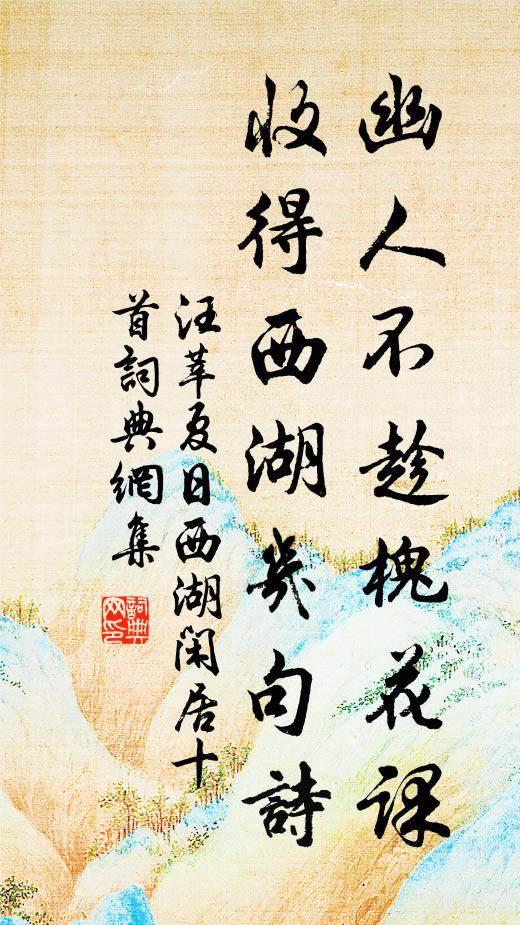 幽人不趁槐花課
收得西湖幾句詩
汪莘夏日西湖閑居十
首詞典網集
詞典
网印